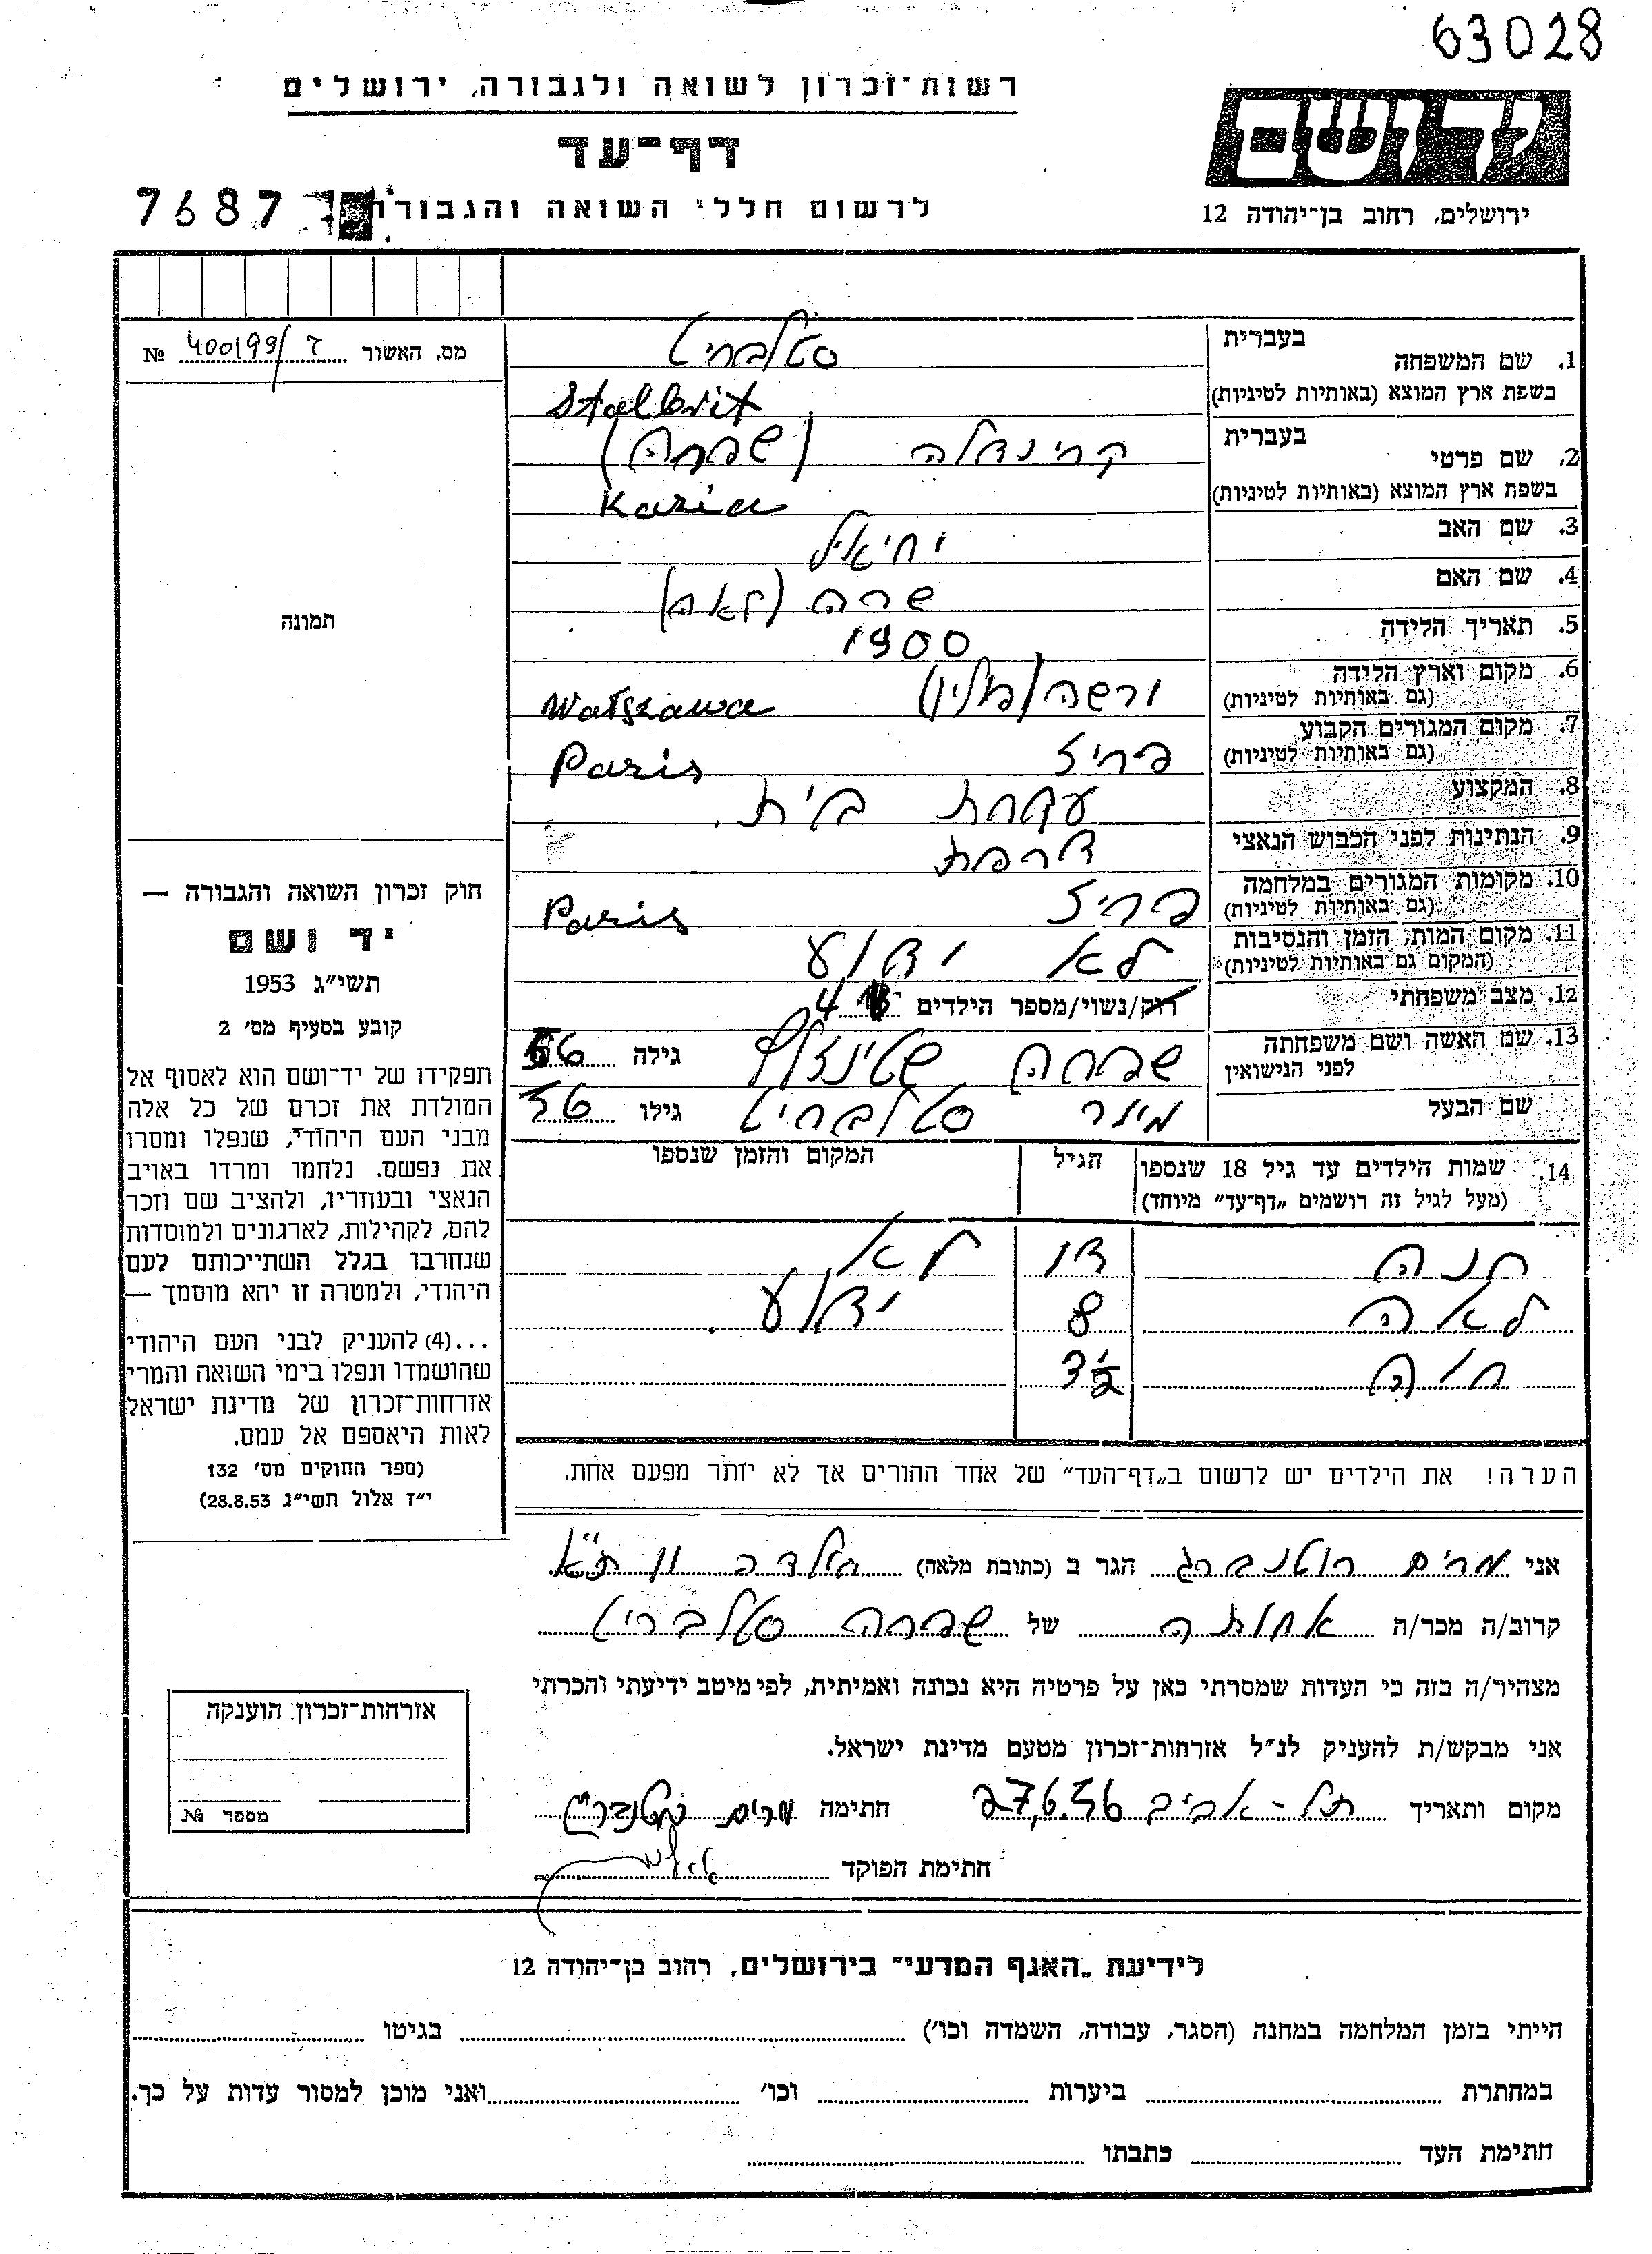 63028
רשות־זכרון לשואה ולגבורה, ירושלים
יד ושם
דף־עד
לרשום חללי השואה והגבורה
7687
ירושלים, רחוב בן־יהודה 12
מס. האשור 400199/ד №
תמונה
בעברית
1. שם המשפחה סטלבריט
בשפת ארץ המוצא (באותיות לטיניות) Stalbrit
בעברית
2. שם פרטי קרינדלה (שפרה)
בשפת ארץ המוצא (באותיות לטיניות) Karin
3. שם האב יחיאל
4. שם האם שרה (לאה)
5. תאריך הלידה 1900
6. מקום וארץ הלידה ורשה (פולין) Warszawa
(גם באותיות לטיניות)
7. מקום המגורים הקבוע פריז Paris
(גם באותיות לטיניות)
8. המקצוע עקרת בית.
9. הנתינות לפני הכבוש הנאצי צרפת
10. מקומות המגורים במלחמה פריז Paris
(גם באותיות לטיניות)
11. מקום המות, הזמן והנסיבות לא ידוע
(המקום גם באותיות לטיניות)
12. מצב משפחתי רווק/נשוי/מספר הילדים 4
13. שם האשה ושם משפחתה שפרה גילה 56
לפני הנישואין
שם הבעל סטלבריט גילו 56
14. שמות הילדים עד גיל 18 שנספו הגיל המקום והזמן שנספו
(מעל לגיל זה רושמים „דף־עד” מיוחד)
חנה לא
לאה 8 ידוע.
חוה
הערה! את הילדים יש לרשום ב„דף־העד” של אחד ההורים אך לא יותר מפעם אחת.
חוק זכרון השואה והגבורה —
יד ושם
תשי״ג 1953
קובע בסעיף מס׳ 2
תפקידו של יד־ושם הוא לאסוף אל
המולדת את זכרם של כל אלה
מבני העם היהודי, שנפלו ומסרו
את נפשם. נלחמו ומרדו באויב
הנאצי ובעוזריו, ולהציב שם וזכר
להם, לקהילות, לארגונים ולמוסדות
שנחרבו בגלל השתייכותם לעם
היהודי, ולמטרה זו יהא מוסמך —
...(4) להעניק לבני העם היהודי
שהושמדו ונפלו בימי השואה והמרי
אזרחות־זכרון של מדינת ישראל
לאות היאספם אל עמם.
(ספר החוקים מס׳ 132
י״ז אלול תשי״ג 28.8.53)
אני מרים רוטנברג הגר ב (כתובת מלאה) ת״א
קרוב/ה מכר/ה אחותה של שפרה סטלבריט
מצהיר/ה בזה כי העדות שמסרתי כאן על פרטיה היא נכונה ואמיתית, לפי מיטב ידיעתי והכרתי
אני מבקש/ת להעניק לנ״ל אזרחות־זכרון מטעם מדינת ישראל.
מקום ותאריך תל-אביב 27.6.56 חתימה מרים רוטנברג
חתימת הפוקד
אזרחות־זכרון הוענקה
מספר №
לידיעת „האגף המדעי” בירושלים, רחוב בן־יהודה 12
הייתי בזמן המלחמה במחנה (הסגר, עבודה, השמדה וכו׳) בגיטו
במחתרת ביערות וכו׳ ואני מוכן למסור עדות על כך.
חתימת העד כתבתו